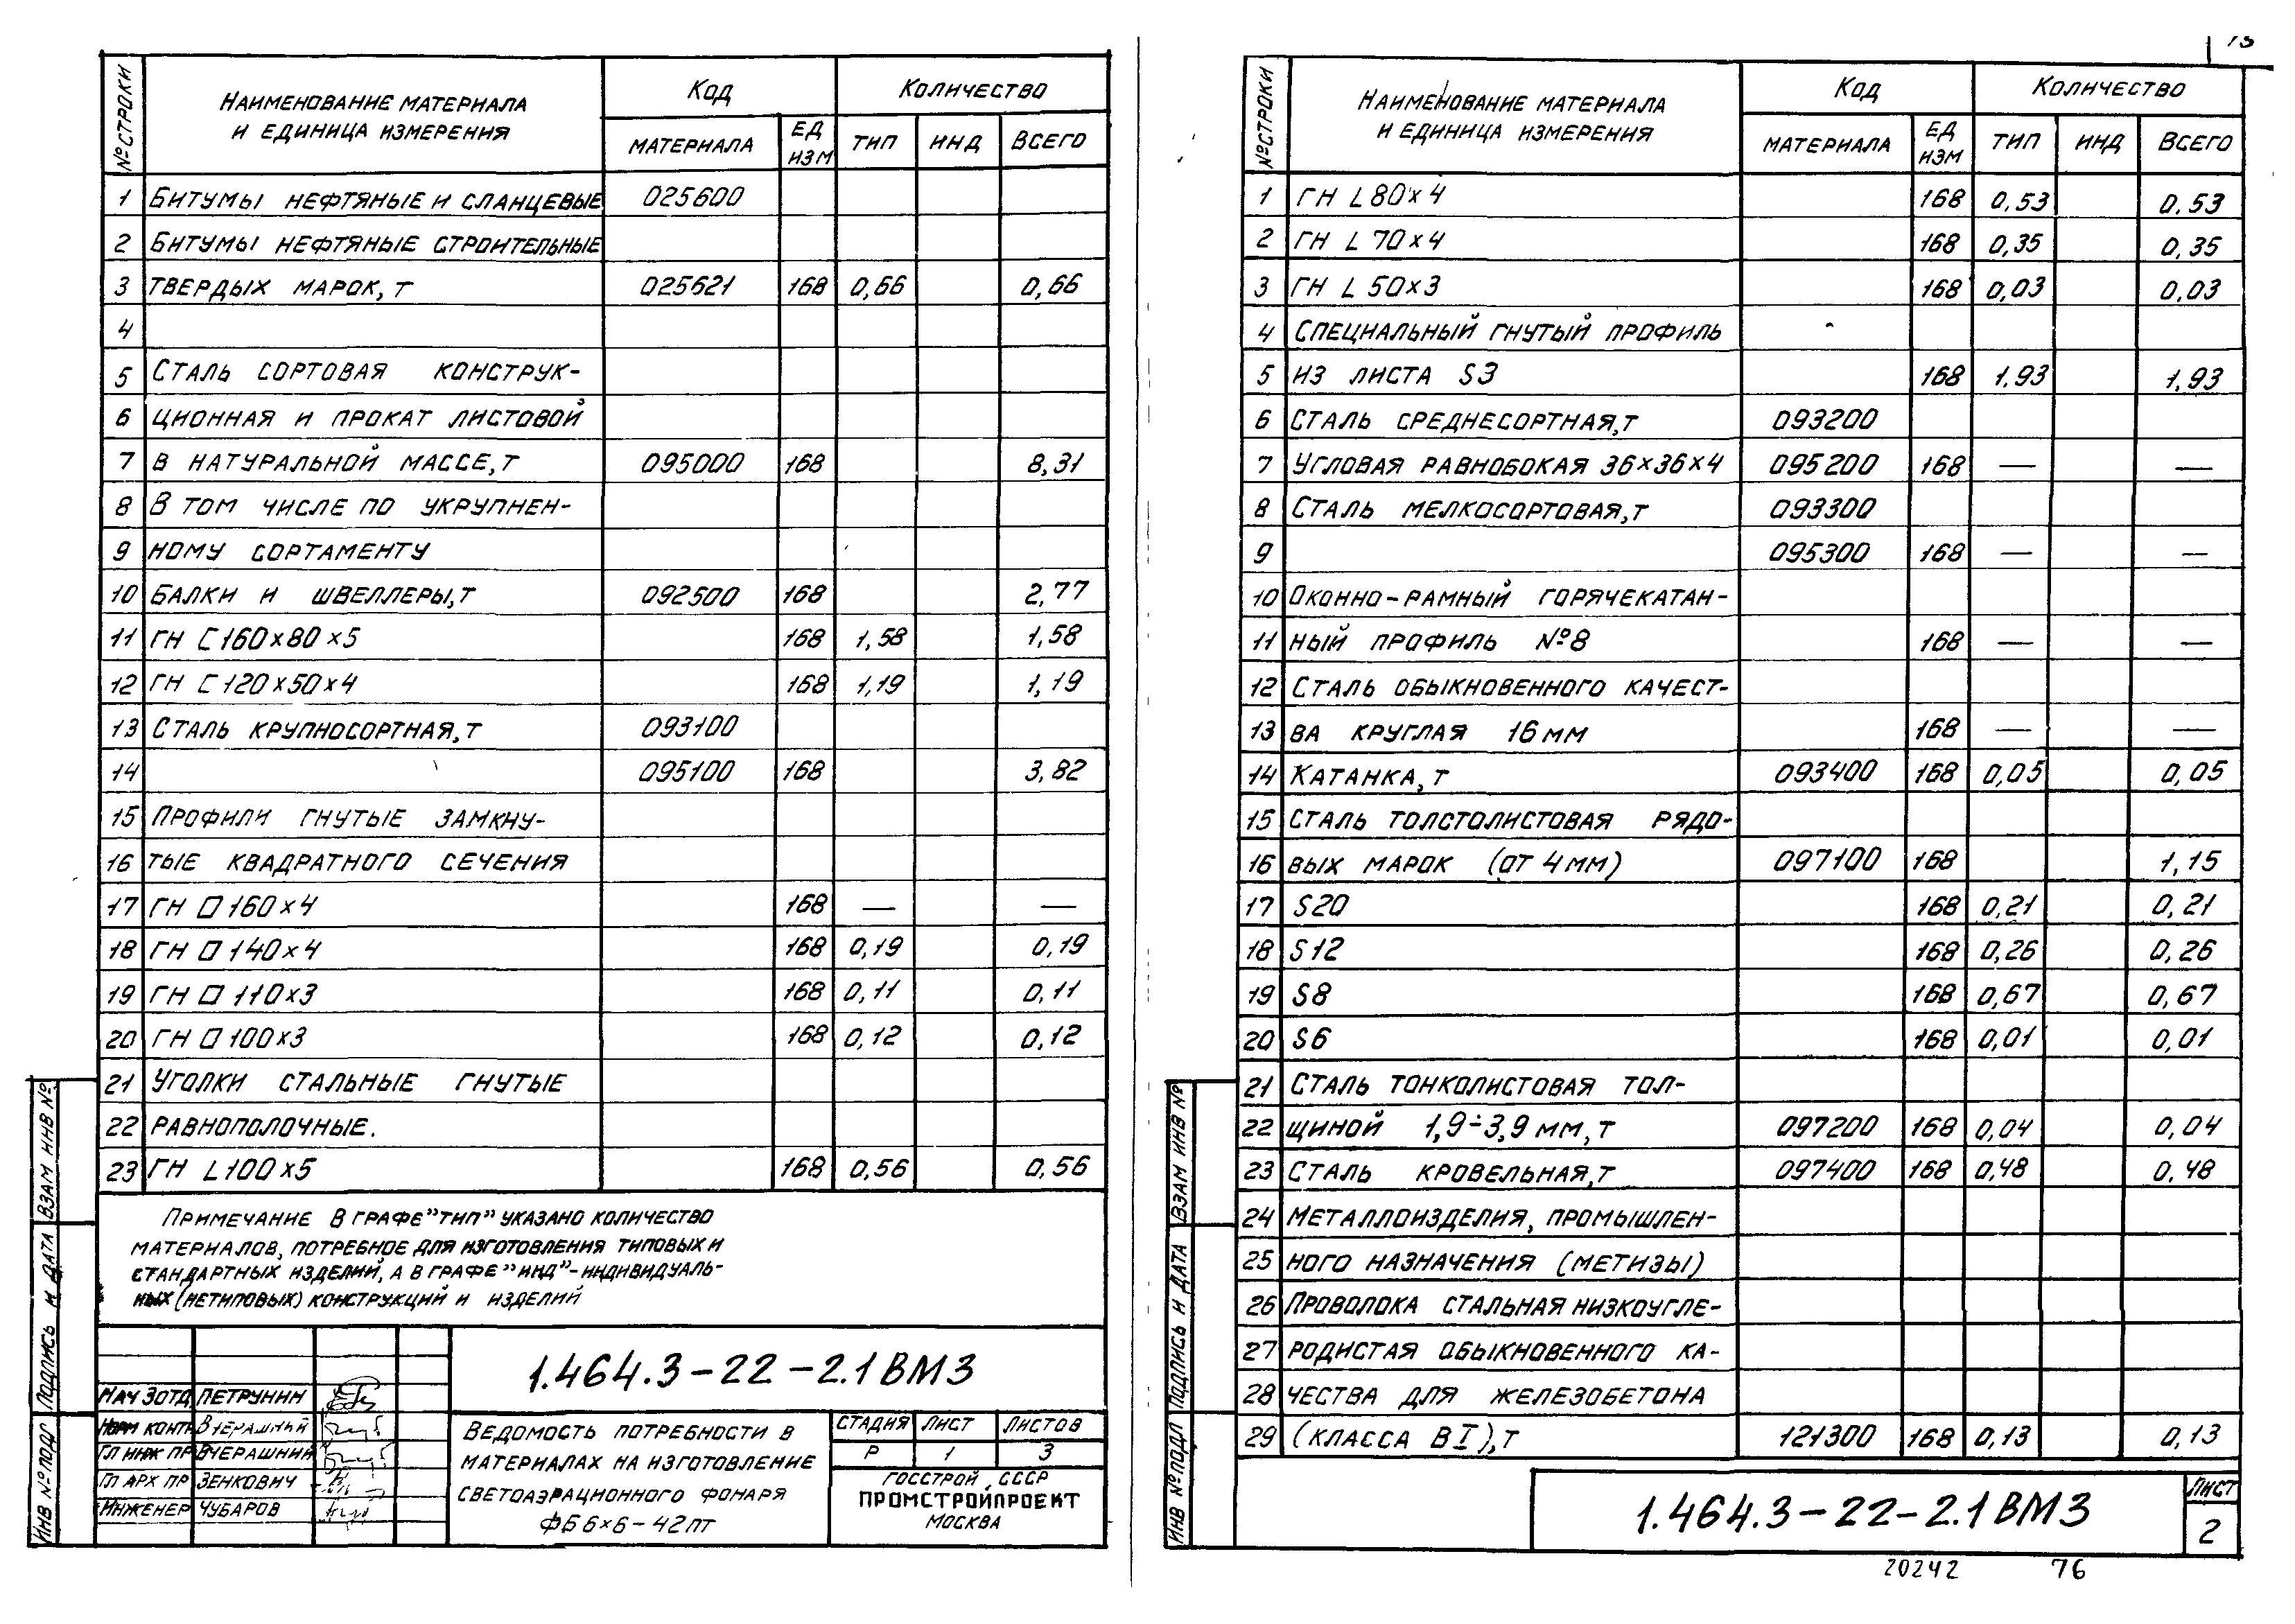 № строки | Наименование материала и единица измерения | Код | Количество
материала | ед изм | тип | инд | всего
1 Битумы нефтяные и сланцевые 025600
2 Битумы нефтяные строительные
3 твердых марок, т 025621 168 0,66 0,66
4
5 Сталь сортовая конструк-
6 ционная и прокат листовой
7 в натуральной массе, т 095000 168 8,31
8 В том числе по укрупнен-
9 ному сортаменту
10 Балки и швеллеры, т 092500 168 2,77
11 ГН С 160×80×5 168 1,58 1,58
12 ГН С 120×50×4 168 1,19 1,19
13 Сталь крупносортная, т 093100
14 095100 168 3,82
15 Профили гнутые замкну-
16 тые квадратного сечения
17 ГН □ 160×4 168 — —
18 ГН □ 140×4 168 0,19 0,19
19 ГН □ 110×3 168 0,11 0,11
20 ГН □ 100×3 168 0,12 0,12
21 Уголки стальные гнутые
22 равнополочные.
23 ГН L 100×5 168 0,56 0,56
Примечание В графе "тип" указано количество
материалов, потребное для изготовления типовых и
стандартных изделий, а в графе "инд" - индивидуаль-
ных (нетиповых) конструкций и изделий
1.464.3-22-2.1 ВМ3
Нач 3отд Петрунин
Норм контр Вчерашний
Гл инж пр Вчерашний
Гл арх пр Зенкович
Инженер Чубаров
Ведомость потребности в
материалах на изготовление
светоаэрационного фонаря
ФБ 6×6-42пт
Стадия Лист Листов
Р 1 3
Госстрой СССР
ПРОМСТРОЙПРОЕКТ
Москва
Инв № подл Подпись и дата Взам инв №
№ строки | Наименование материала и единица измерения | Код | Количество
материала | ед изм | тип | инд | всего
1 ГН L 80×4 168 0,53 0,53
2 ГН L 70×4 168 0,35 0,35
3 ГН L 50×3 168 0,03 0,03
4 Специальный гнутый профиль
5 из листа S3 168 1,93 1,93
6 Сталь среднесортная, т 093200
7 Угловая равнобокая 36×36×4 095200 168 — —
8 Сталь мелкосортовая, т 093300
9 095300 168 — —
10 Оконно-рамный горячекатан-
11 ный профиль №8 168 — —
12 Сталь обыкновенного качест-
13 ва круглая 16 мм 168 — —
14 Катанка, т 093400 168 0,05 0,05
15 Сталь толстолистовая рядо-
16 вых марок (от 4 мм) 097100 168 1,15
17 S20 168 0,21 0,21
18 S12 168 0,26 0,26
19 S8 168 0,67 0,67
20 S6 168 0,01 0,01
21 Сталь тонколистовая тол-
22 щиной 1,9÷3,9 мм, т 097200 168 0,04 0,04
23 Сталь кровельная, т 097400 168 0,48 0,48
24 Металлоизделия, промышлен-
25 ного назначения (метизы)
26 Проволока стальная низкоугле-
27 родистая обыкновенного ка-
28 чества для железобетона
29 (класса ВI), т 121300 168 0,13 0,13
1.464.3-22-2.1 ВМ3
Лист
2
Инв № подл Подпись и дата Взам инв №
20242 76